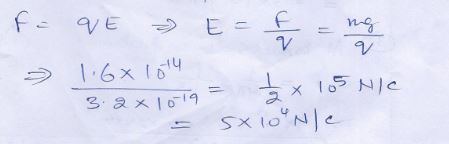 F = qE ⇒ E = F/q = mg/q
⇒ 1.6×10⁻¹⁴/3.2×10⁻¹⁹ = 1/2 × 10⁵ N/C
= 5×10⁴ N/C